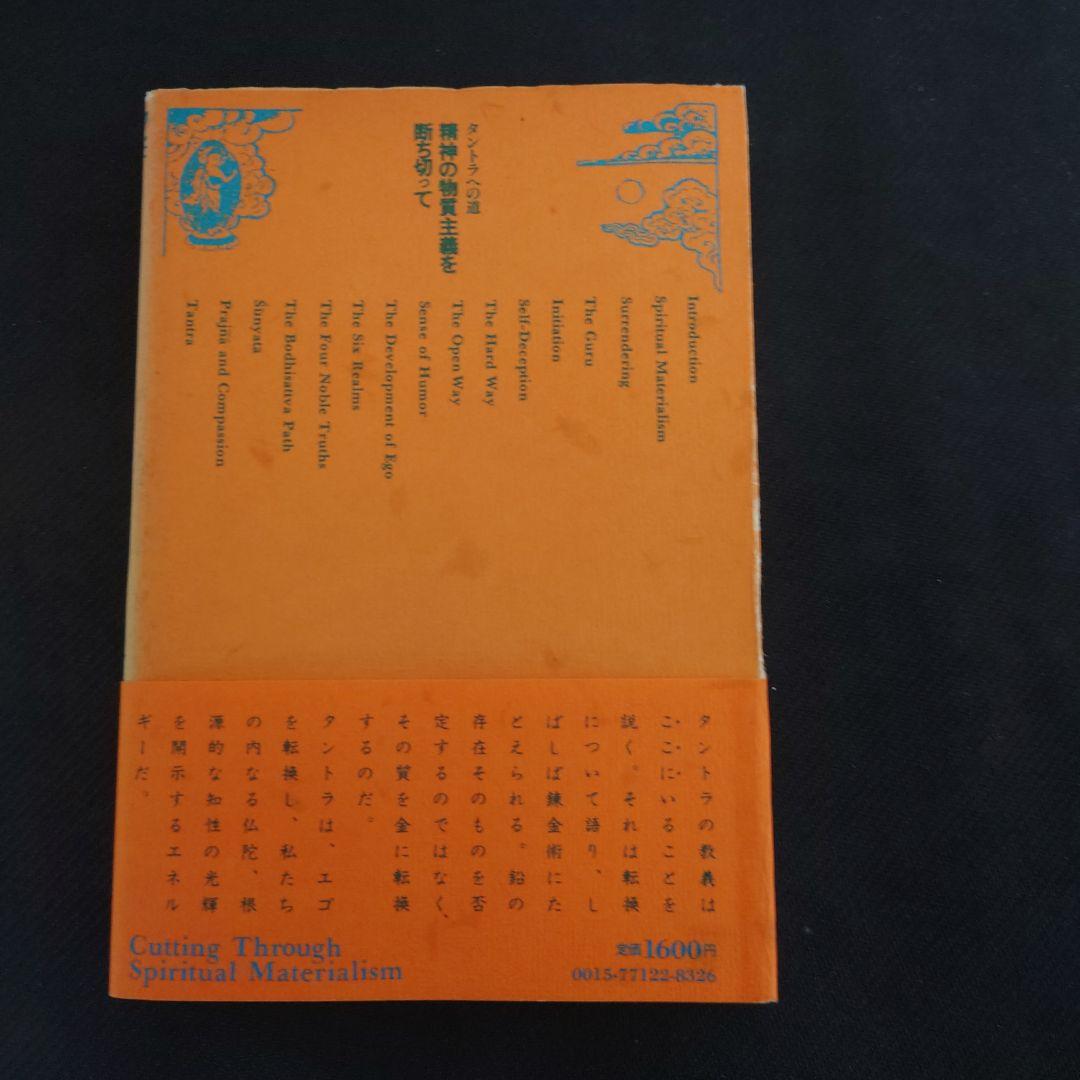 タントラへの道
精神の物質主義を
断ち切って
Introduction
Spiritual Materialism
Surrendering
The Guru
Initiation
Self-Deception
The Hard Way
The Open Way
Sense of Humor
The Development of Ego
The Six Realms
The Four Noble Truths
The Bodhisattva Path
Śūnyata
Prajñā and Compassion
Tantra
タントラの教義は
ここにいることを
説く。それは転換
について語り、し
ばしば錬金術にた
とえられる。鉛の
存在そのものを否
定するのではなく、
その質を金に転換
するのだ。
タントラは、エゴ
を転換し、私たち
の内なる仏陀、根
源的な知性の光輝
を開示するエネル
ギーだ。
Cutting Through
Spiritual Materialism
定価1600円
0015-77122-8326